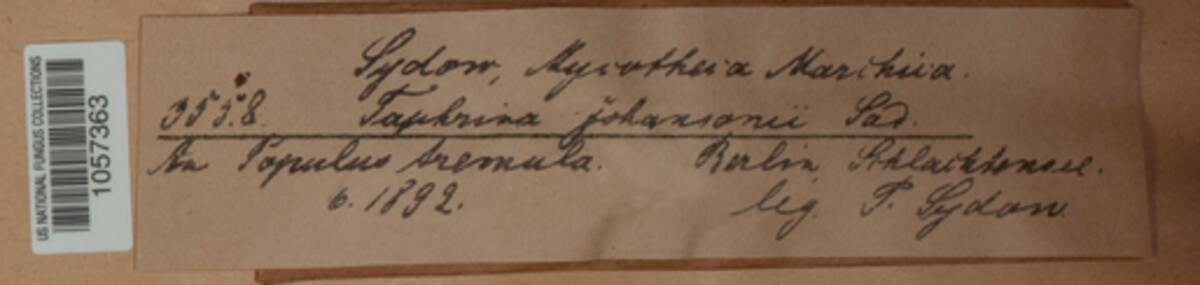 US NATIONAL FUNGUS COLLECTIONS
01057363
Sydow, Mycotheca Marchica.
3558. Taphrina johansonii Sad.
An Populus tremula. Berlin Schlachtensee.
6. 1892. leg. P. Sydow.